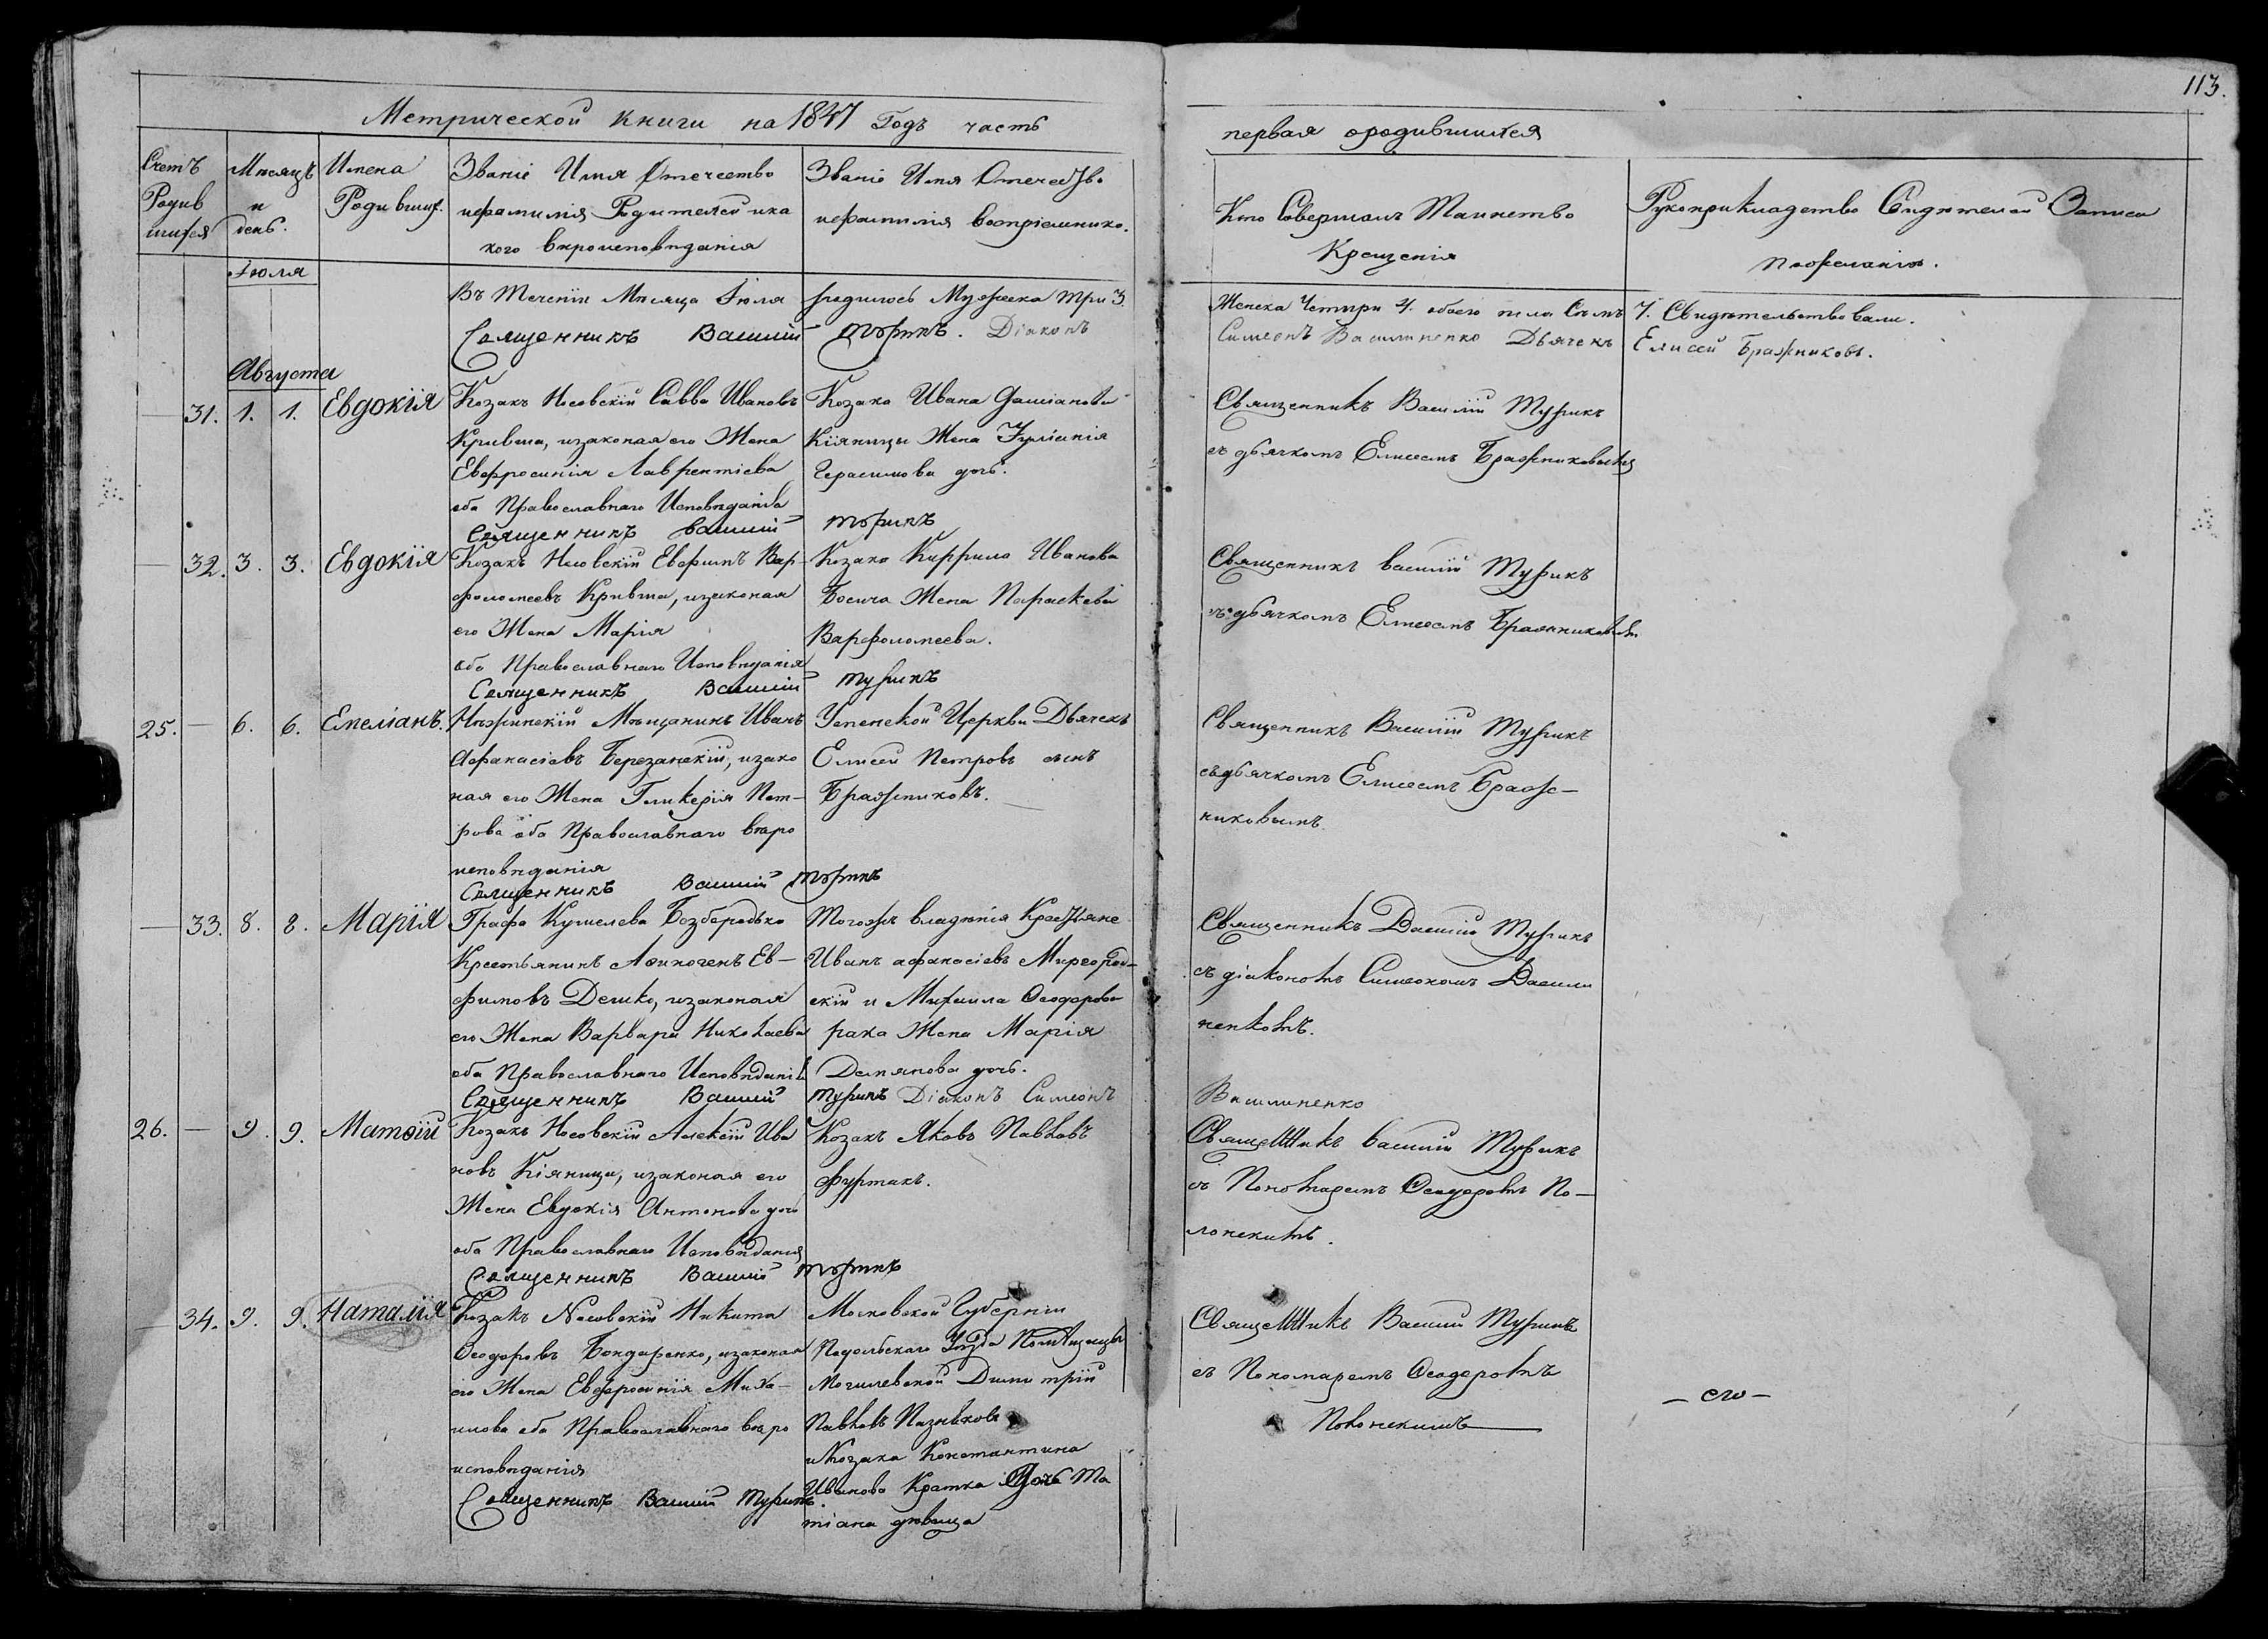 113.
Метрической книги на 1847 Годъ часть
первая ородившихся
Счетъ Родив шихся
Мѣсяцъ и день.
Имена Родивших.
Званіе Имя Отечество
ифамилія Родителей ика
кого вѣроисповѣданія
Званіе Имя Отечество
ифамилія воспріемнико.
Кто Совершалъ Таинство
Крещенія
Рукоприкладство Свидѣтелей Записи
пожеланію.
Іюля
Въ Теченіи Мѣсяца Іюля родилось Мужеска три 3. Женска Четыри 4. обоего пола Семъ 7. Свидѣтельствовали.
Священникъ Василий Турикъ. Діаконъ Симеонъ Василиненко Дьячекъ Елисей Бражниковъ.
Августа
31. 1. 1. Евдокія
Козакъ Носовскій Савва Ивановъ
Кривша, изаконая его Жена
Евфросинія Лаврентіева
оба Православнаго Исповѣданія
Священникъ Василий Турикъ
Козака Ивана Даміанова
Кіяницы Жена Іуліанія
Герасимова дочь.
Священникъ Василій Турикъ
съ дьячкомъ Елисеемъ Бражниковымъ
32. 3. 3. Евдокія
Козакъ Носовскій Евфимъ Вар-
фоломеевъ Кривша, изаконая
его Жена Марія
оба Православнаго Исповѣданія
Священникъ Василий Турикъ
Козака Киррила Иванова
Жена Параскева
Варфоломеева.
Священникъ Василій Турикъ
съ дьячкомъ Елисеемъ Бражниковым.
25. — 6. 6. Емеліанъ.
Нѣжинскій Мѣщанинъ Иванъ
Афанасіевъ Березанскій, изако
ная его Жена Гликерія Пет-
рова оба Православнаго вѣро
исповѣданія
Священникъ Василий Турикъ
Успенской Церкви Дьячекъ
Елисей Петровъ сынъ
Бражниковъ.
Священникъ Василій Турикъ
съдьячкомъ Елисеемъ Браж-
никовымъ.
— 33. 8. 8. Марія
Графа Кушелева Безбородько
Крестьянинъ Аѳиногенъ Ев-
фимовъ Дешко, изаконая
его Жена Варвара Николаева
оба Православнаго Исповѣданія
Священникъ Василий Турикъ Діаконъ Симеонъ Василиненко
Тогожъ владѣнія Крестьяне
Иванъ афанасіевъ Миргород-
скій и Михаила Ѳеодорова
рака Жена Марія
Демянова дочь.
Священникъ Василій Турикъ
съ діакономъ Симеономъ Васили
ненкомъ.
26. — 9. 9. Матѳій
Козакъ Носовскій Алексій Ива
новъ Кіяница, изаконая его
Жена Евдокія Антонова дочь
оба Православнаго Исповѣданія
Священникъ Василий Турикъ
Козакъ Яковъ Павловъ
фуртакъ.
Священникъ Василій Турикъ
съ Пономаремъ Ѳеодоромъ По-
лонскимъ.
— 34. 9. 9. Наталія
Козакъ Носовскій Никита
Ѳеодоровъ Бондаренко, изаконая
его Жена Евфросинія Миха-
илова оба Православнаго вѣро
исповѣданія
Священникъ Василий Турикъ.
Московской Губерніи
Подольскаго Уѣзда Помѣщицы
Могилевской Димитрій
Павловъ Пазньковъ
иКозака Константина
Иванова Кратка Дочь Та
тіана дѣвица
Священникъ Василій Турикъ
съ Пономаремъ Ѳеодоромъ
Полонскимъ